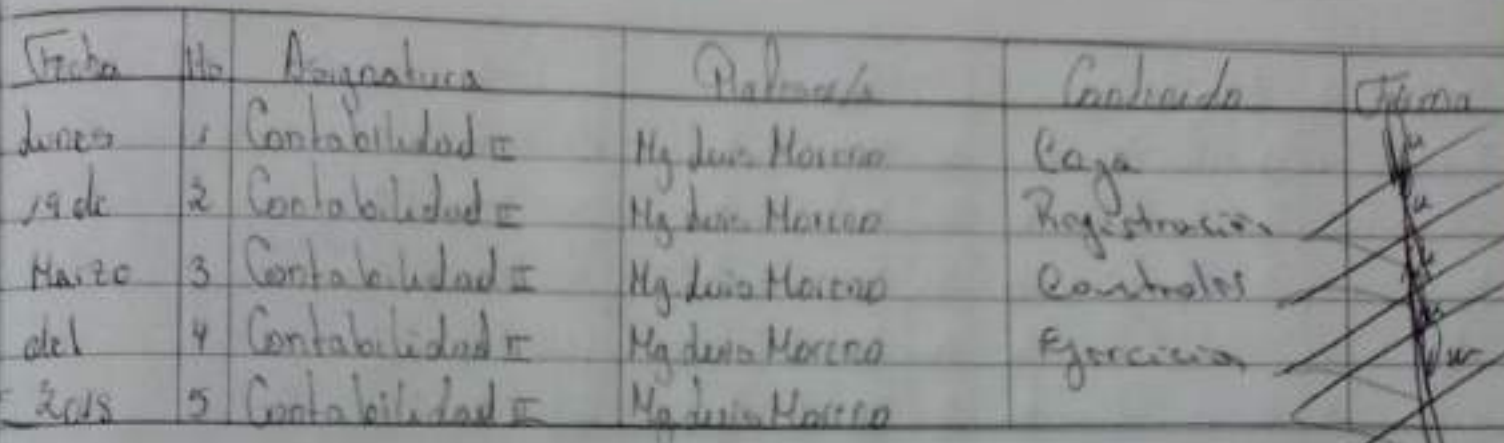 Fecha No Asignatura Contenido Firma
Lunes 1 Contabilidad II Mg Luis Moreno Caja
19 de 2 Contabilidad II Mg Luis Moreno Registración
Marzo 3 Contabilidad II Mg Luis Moreno Controles
del 4 Contabilidad II Mg Luis Moreno Ejercicios
2018 5 Contabilidad II Mg Luis Moreno